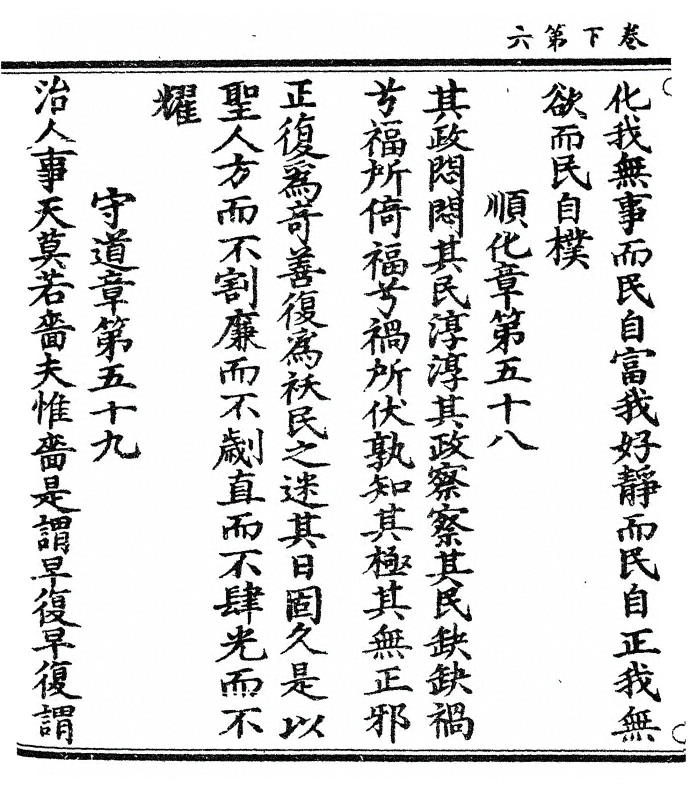 卷下第六
化我無事而民自富我好靜而民自正我無
欲而民自樸
順化章第五十八
其政悶悶其民淳淳其政察察其民缺缺禍
兮福所倚福兮禍所伏孰知其極其無正邪
正復爲奇善復爲祅民之迷其日固久是以
聖人方而不割廉而不劌直而不肆光而不
耀
守道章第五十九
治人事天莫若嗇夫惟嗇是謂早復早復謂